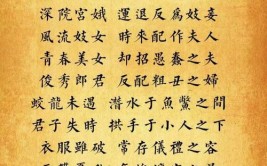 深院宮娥 運退反爲妓妾
風流妓女 時來配作夫人
青春美女 却招愚蠢之夫
俊秀郎君 反配粗丑之婦
蛟龍未遇 潛水于魚鱉之間
君子失時 拱手于小人之下
衣服雖破 常存儀禮之容